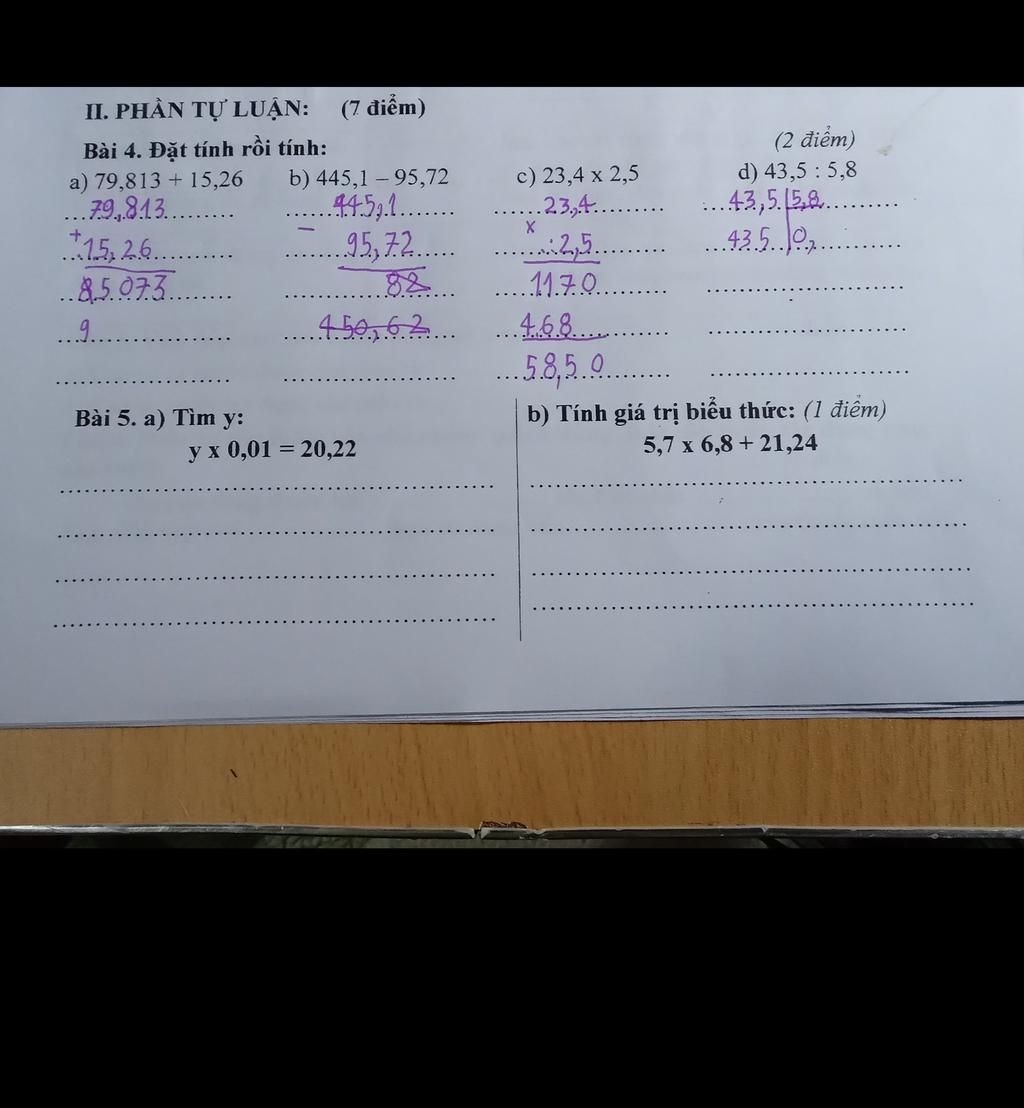 II. PHẦN TỰ LUẬN: (7 điểm)
Bài 4. Đặt tính rồi tính: (2 điểm)
a) 79,813 + 15,26 b) 445,1 – 95,72 c) 23,4 x 2,5 d) 43,5 : 5,8
79,813 445,1 23,4 43,5 5,8
+ 15,26 – 95,72 x 2,5 435 0,
85073 88 1170
9 450,62 468
58,50
Bài 5. a) Tìm y: b) Tính giá trị biểu thức: (1 điểm)
y x 0,01 = 20,22 5,7 x 6,8 + 21,24